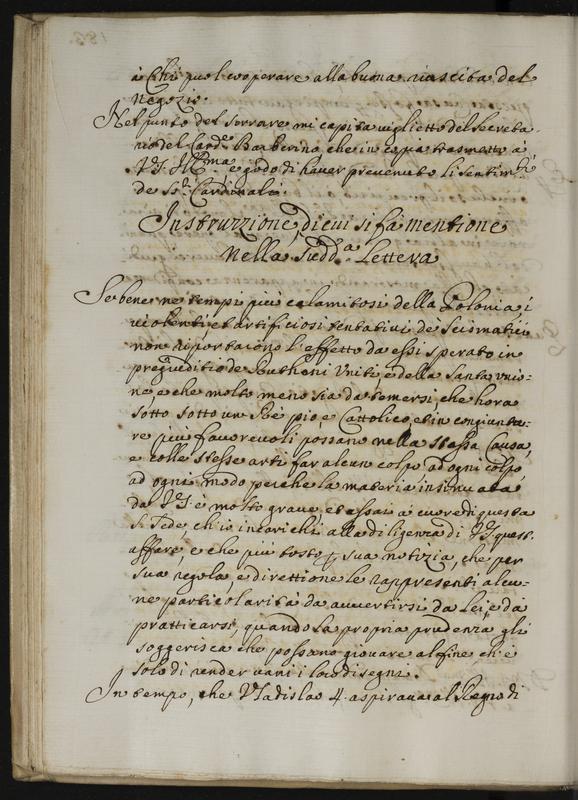 à Chi può cooperare alla buona riuscita del
Negozio.
Nel punto del serrare mi capita viglietto del Secreta-
rio del Card.e Barberino che in copia trasmetto à
V.S. Ill.ma, e godo di haver prevenuto li sentim.ti
de Ss.ri Cardinali.
Instruzzione, di cui si fà mentione
nella sudd.a Lettera
Se bene ne tempi più calamitosi della Polonia i
violenti, et artificiosi tentativi de Scismatici
non riportarono l'effetto da essi sperato in
pregiuditio de Rutheni Uniti, e della Santa Unio-
ne e che molto meno sia da temersi che hora
sotto sotto un Rè pio, e Cattolico, et in congiuntu-
re più favorevoli possano nella stessa Causa,
e colle stesse arti far alcun colpo ad ogni colpo
ad ogni modo perche la materia insinuata
da V.S. è molto grave, et assai à cuore di questa
S. Sede, ch'io incarichi alla diligenza di V.S. quest.
affare, e che più tosto p sua notizia, che per
sua regola, e direttione le rappresenti alcu-
ne particolarità da avvertirsi da Lei, e da
pratticarsi, quando la propria prudenza gli
suggerisca che possano giovare al fine, ch'è
solo di render vani i loro disegni.
In tempo, che Vladislao 4. aspirava al Regno di